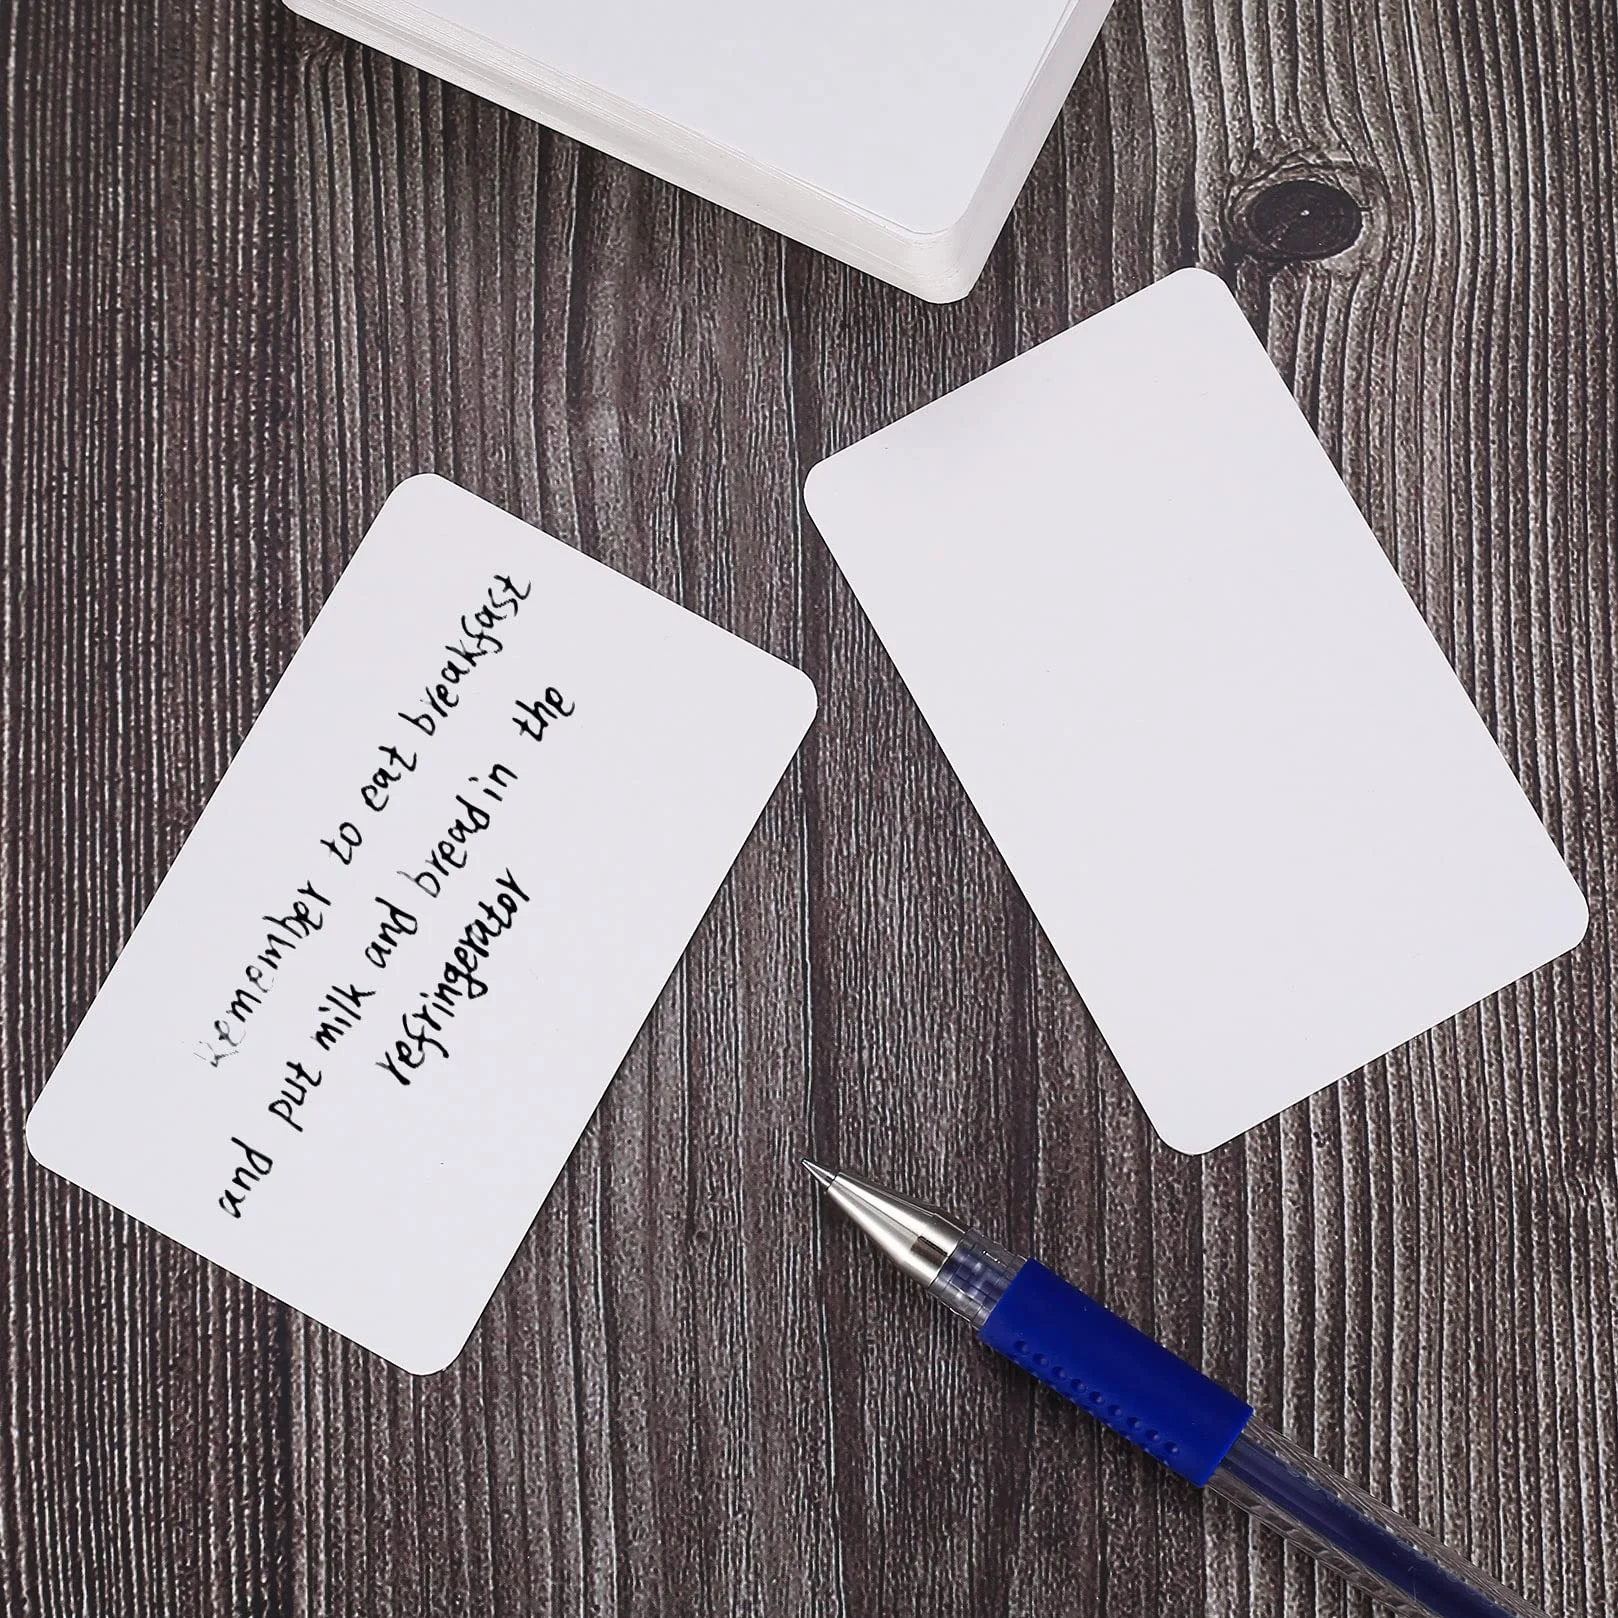 Remember to eat breakfast
and put milk and bread in the
refringerator